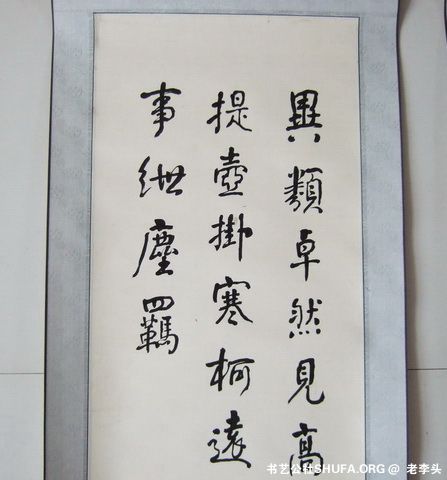 異類卓然見高
提壺掛寒柯遠
事紲塵羈
书艺公社SHUFA.ORG @ 老李头